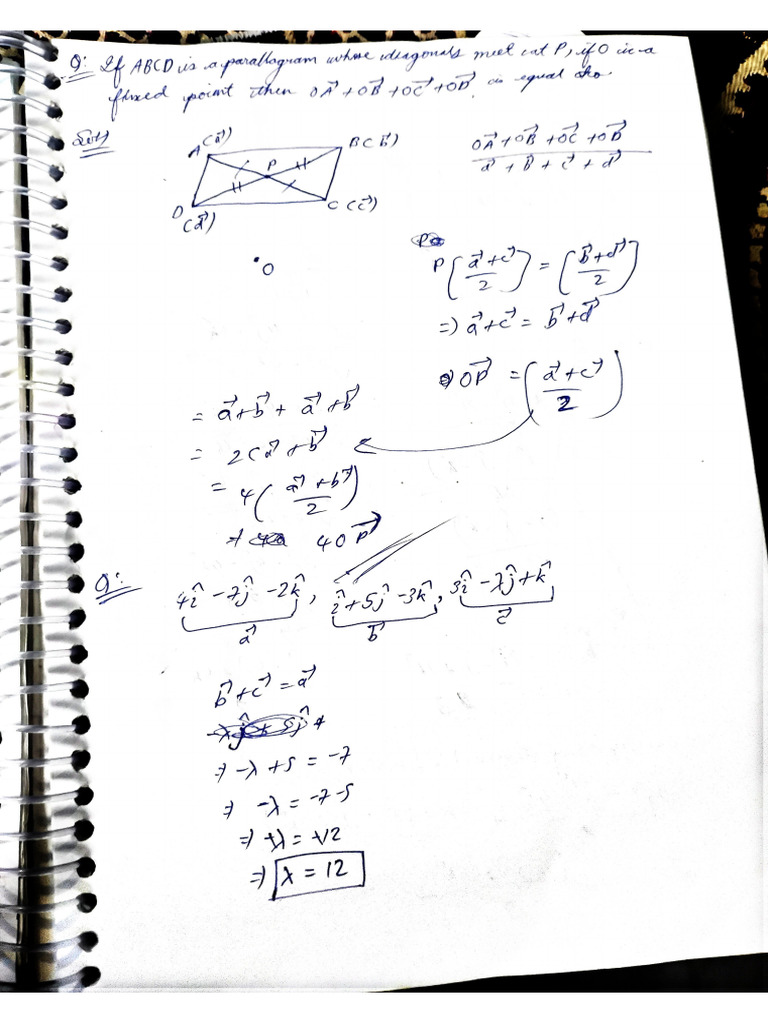 Q: If ABCD is a parallagram whose diagonals meet at P, if O is a
fixed point then OA⃗ + OB⃗ + OC⃗ + OD⃗ is equal to
Sol)
A(a⃗) B(b⃗)
P
D(d⃗) C(c⃗)
O
OA⃗ + OB⃗ + OC⃗ + OD⃗
a⃗ + b⃗ + c⃗ + d⃗
P((a⃗ + c⃗)/2) = ((b⃗ + d⃗)/2)
=) a⃗ + c⃗ = b⃗ + d⃗
OP⃗ = ((a⃗ + c⃗)/2)
= a⃗ + b⃗ + a⃗ + b⃗
= 2(a⃗ + b⃗)
= 4((a⃗ + b⃗)/2)
⇒ 4OP⃗
Q: 4î − 7ĵ − 2k̂, î + 5ĵ − 3k̂, 3î − λĵ + k̂
a⃗ b⃗ c⃗
b⃗ + c⃗ = a⃗
⇒ −λ + 5 = −7
⇒ −λ = −7 − 5
=) +λ = +12
=) λ = 12